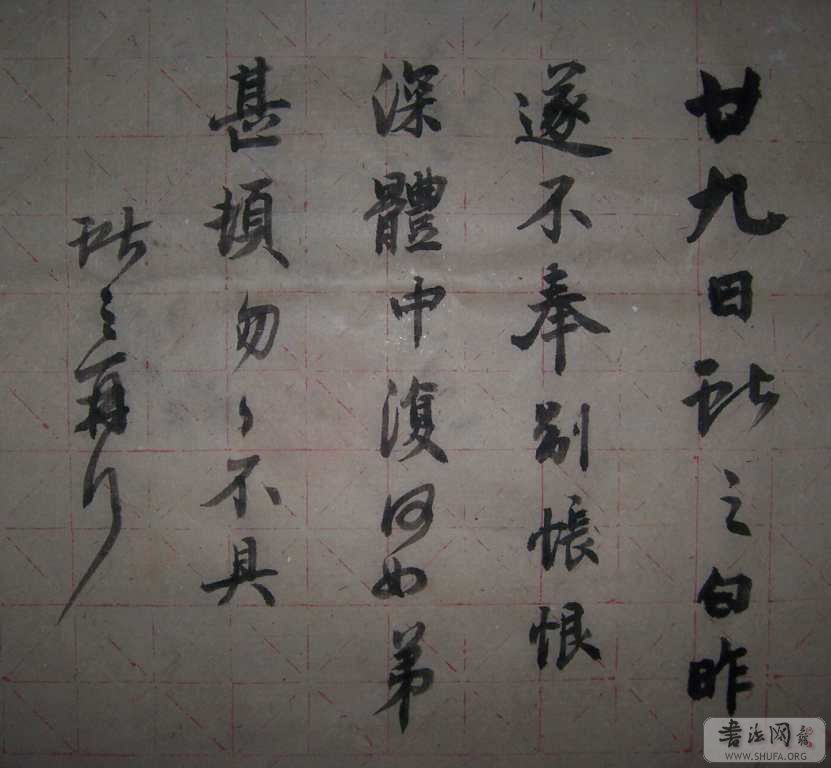 廿九日献之白昨
遂不奉别悵恨
深體中復何如弟
甚頓勿勿不具
献之再拜
書法网
WWW.SHUFA.ORG